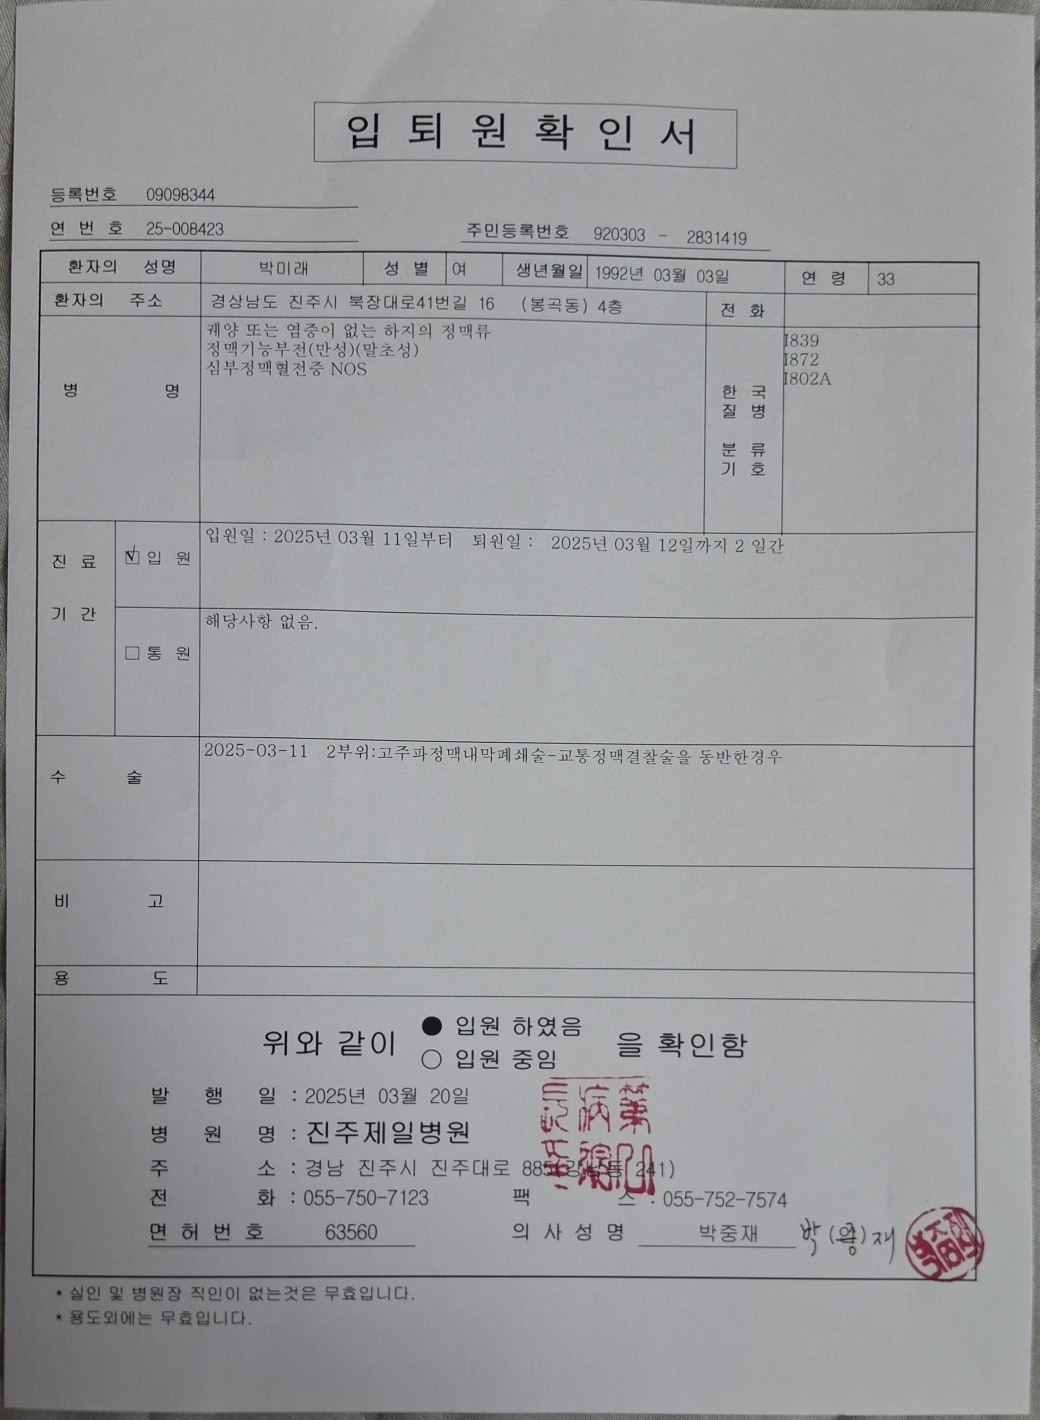 입 퇴 원 확 인 서
등록번호 09098344
연 번 호 25-008423 주민등록번호 920303 - 2831419
환자의 성명 박미래 성 별 여 생년월일 1992년 03월 03일 연 령 33
환자의 주소 경상남도 진주시 북장대로41번길 16 (봉곡동) 4층 전 화
병 명 궤양 또는 염증이 없는 하지의 정맥류
정맥기능부전(만성)(말초성)
심부정맥혈전증 NOS
한 국
질 병
분 류
기 호
I839
I872
I802A
진 료
기 간
입 원 입원일 : 2025년 03월 11일부터 퇴원일 : 2025년 03월 12일까지 2 일간
통 원 해당사항 없음.
수 술 2025-03-11 2부위:고주파정맥내막폐쇄술-교통정맥결찰술을 동반한경우
비 고
용 도
위와 같이 ● 입원 하였음 ○ 입원 중임 을 확인함
발 행 일 : 2025년 03월 20일
병 원 명 : 진주제일병원
주 소 : 경남 진주시 진주대로 885(강남동 241)
전 화 : 055-750-7123 팩 스 : 055-752-7574
면 허 번 호 63560 의 사 성 명 박중재 박(중)재
* 실인 및 병원장 직인이 없는것은 무효입니다.
* 용도외에는 무효입니다.